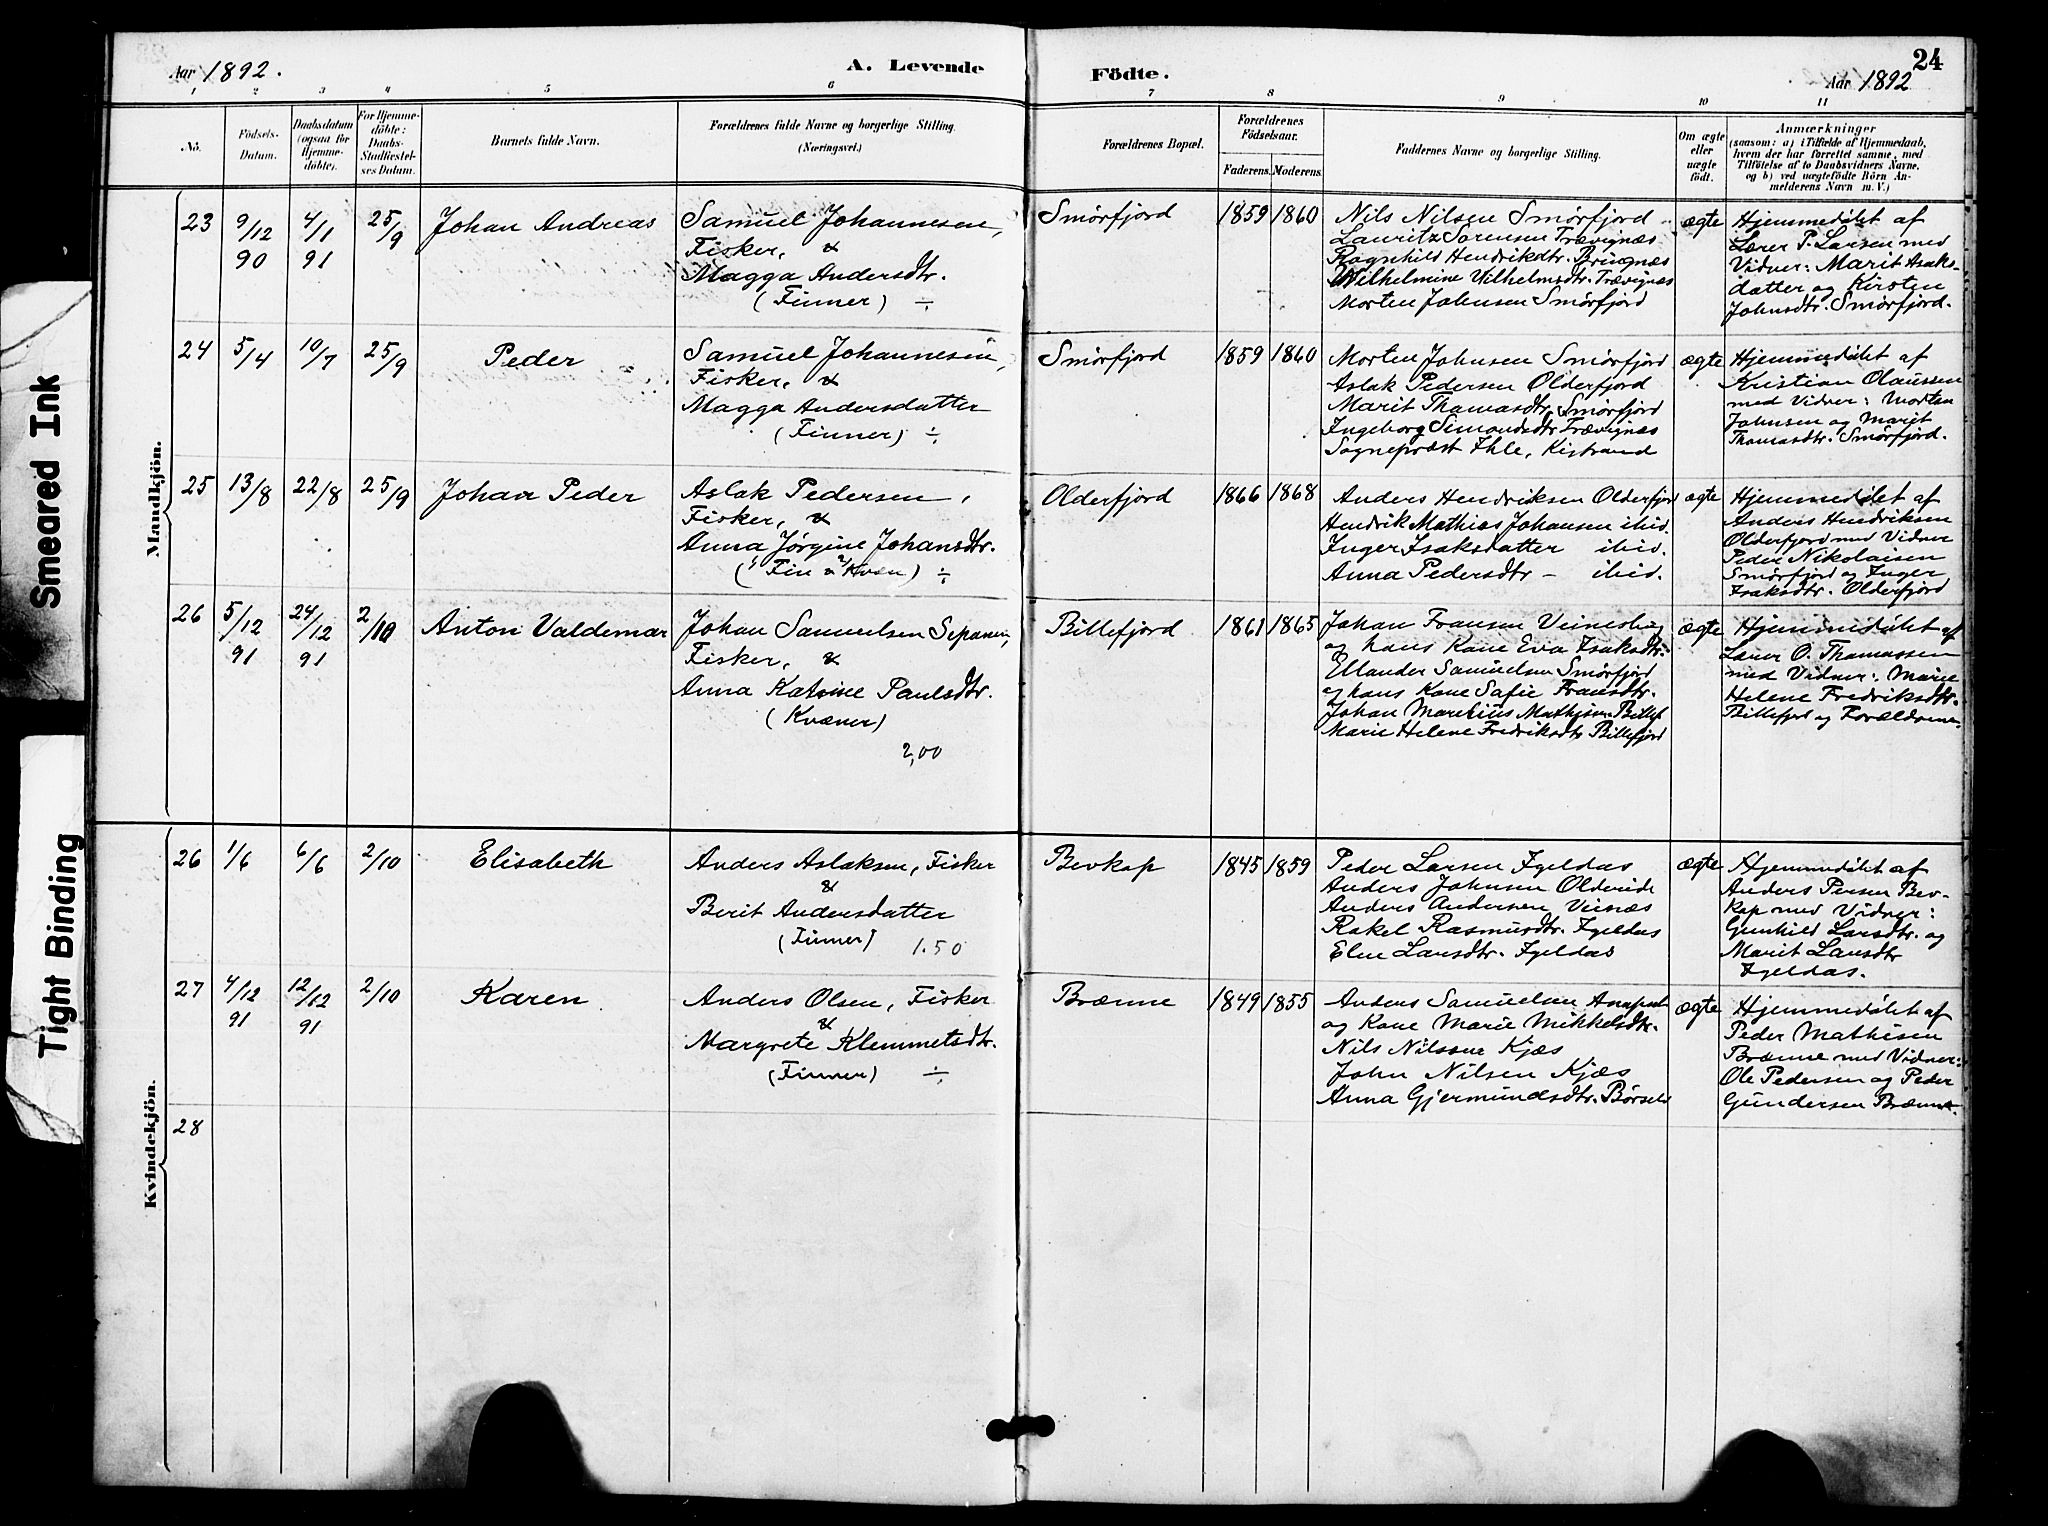 Aar 1892.
A. Levende Födte.
24
Aar 1892
1 2 3 4 5 6 7 8 9 10 11
No.
Födsels-
Datum.
Daabsdatum
(ogsaa for
Hjemme-
döbte).
For Hjemme-
döbte:
Daabs-
Stadfæstel-
ses Datum.
Barnets fulde Navn.
Forældrenes fulde Navne og borgerlige Stilling.
(Næringsvei.)
Forældrenes Bopæl.
Forældrenes
Födselsaar.
Faderens. Moderens.
Faddernes Navne og borgerlige Stilling.
Om ægte
eller
uægte
födt.
Anmærkninger
(saasom: a) i Tilfælde af Hjemmedaab,
hvem der har forrettet samme, med
Tilföielse af to Daabsvidners Navne,
og b) ved uægtefödte Börn An-
melderens Navn m. V.)
Smeared Ink
Tight Binding
Mandkjön.
23
9/12
90
4/1
91
25/9
Johan Andreas
Samuel Johannesen,
Fisker, &
Magga Andersdtr.
(Finner) ÷
Smörfjord
1859
1860
Nils Nilsen Smörfjord
Lauritz Sørensen Trævignæs
Ragnhild Henriksdtr. Bringnæs
Wilhelmine Vilhelmsdtr. Trævignæs
Morten Johnsen Smörfjord
ægte
Hjemmedøbt af
Lærer P. Larsen med
Vidner: Marit Isaks-
datter og Kirsten
Johnsdtr. Smörfjord.
24
5/4
10/7
25/9
Peder
Samuel Johannesen,
Fisker, &
Magga Andersdatter
(Finner) ÷
Smörfjord
1859
1860
Morten Johnsen Smörfjord
Aslak Pedersen Olderfjord
Marit Thomasdtr. Smörfjord
Ingeborg Simonsdtr. Trævignæs
Sognepræst Ihle, Kistrand
ægte
Hjemmedøbt af
Kristian Olaussen
med Vidner: Morten
Johnsen og Marit
Thomasdtr. Smörfjord.
25
13/8
22/8
25/9
Johan Peder
Aslak Pedersen,
Fisker, &
Anna Jørgine Johansdtr.
(Fin & Kvæn) ÷
Olderfjord
1866
1868
Anders Hendriksen Olderfjord
Hendrik Mathias Johansen ibid.
Inger Isaksdatter ibid.
Anna Pedersdtr - ibid.
ægte
Hjemmedøbt af
Anders Hendriksen
Olderfjord med Vidner
Peder Nikolaisen
Smörfjord og Inger
Isaksdtr. Olderfjord
26
5/12
91
24/12
91
2/10
Anton Valdemar
Johan Samuelsen Sepanen,
Fisker, &
Anna Katrine Paulsdtr.
(Kvæner)
2,00
Billefjord
1861
1865
Johan Fransen
og hans Kone Eva Isaksdtr.
Ellander Samuelsen Smörfjord
og hans Kone Safie Fransdtr.
Johan Mathisen Billef
Marie Helene Fredriksdtr Billefjord
ægte
Hjemmedøbt af
Lærer O. Thomassen
med Vidner: Marie
Helene Fredriksdtr.
Billefjord og Forældrene.
Kvindekjön.
26
1/6
6/6
2/10
Elisabeth
Anders Aslaksen, Fisker
&
Berit Andersdatter
(Finner) 1.50
Bevkop
1845
1859
Peder Larsen Igeldas
Anders Johnsen Ødereide
Anders Andersen Veinæs
Rakel Rasmusdtr. Igeldas
Elen Larsdtr. Igeldas
ægte
Hjemmedøbt af
Anders Persen Bev-
kop med Vidner:
Gunhild Larsdtr. og
Marit Larsdtr
Igeldas.
27
4/12
91
12/12
91
2/10
Karen
Anders Olsen, Fisker
&
Margrete Klemmetsdtr.
(Finner) ÷
Brænne
1849
1855
Anders Samuelsen
og Kone Marie Mikkelsdtr.
Nils Nilsen Kjæs
John Nilsen Kjæs
Anna Gjermundsdtr. Børselv
ægte
Hjemmedøbt af
Peder Mathisen
Brænne med Vidner:
Ole Pedersen og Peder
Gundersen Brænne.
28